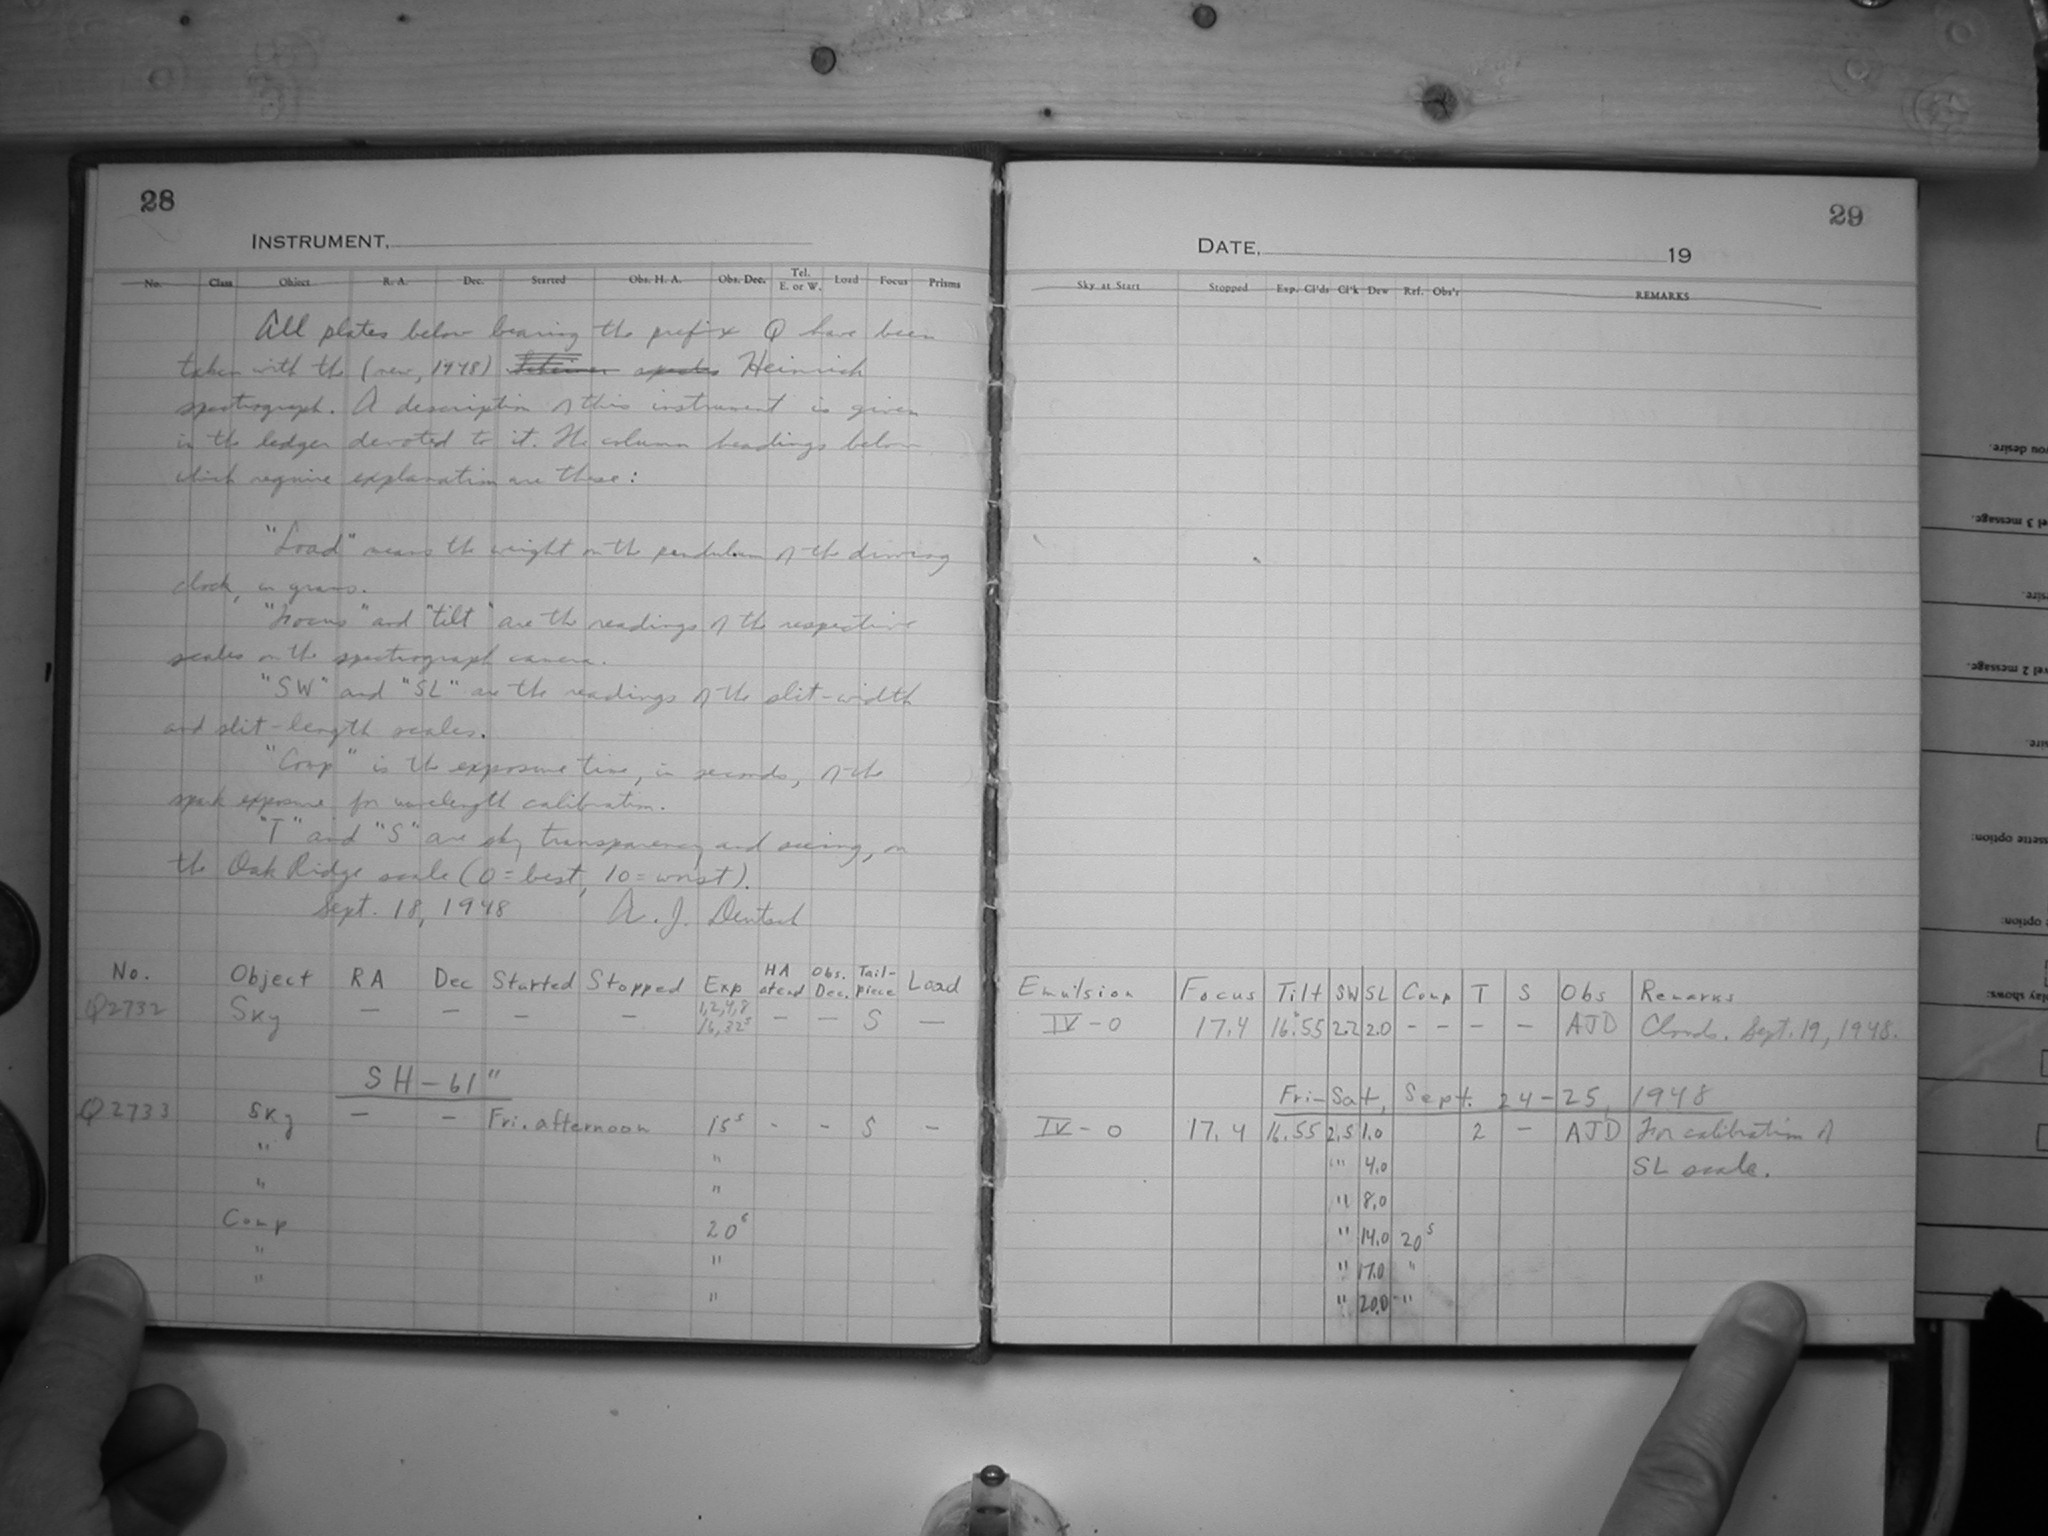 28
INSTRUMENT,
No. Class Object R. A. Dec. Started Obs. H. A. Obs. Dec. Tel. E. or W. Load Focus Prisms
All plates below bearing the prefix Q have been
taken with the (new, 1948) Heinrich
spectrograph. A description of this instrument is given
in the ledger devoted to it. The column headings below
which require explanation are these:
"Load" means the weight on the pendulum of the driving
clock, in grams.
"Focus" and "tilt" are the readings of the respective
scales on the spectrograph camera.
"SW" and "SL" are the readings of the slit-width
and slit-length scales.
"Comp" is the exposure time, in seconds, of the
spark exposure for wavelength calibration.
"T" and "S" are sky transparency and seeing, on
the Oak Ridge scale (0 = best, 10 = worst).
Sept. 18, 1948 A. J. Deutsch
No. Object RA Dec Started Stopped Exp HA at end Obs. Dec. Tail-piece Load
Q2732 Sky — — — — 1,2,4,8 16,32s — — S —
SH-61"
Q2733 Sky — — Fri. afternoon 15s - - S -
" "
" "
Comp 20s
" "
" "
29
DATE, 19
Sky at Start Stopped Exp. Cl'ds Cl'k Dew Ref. Obs'r REMARKS
Emulsion Focus Tilt SW SL Comp T S Obs Remarks
IV-0 17.4 16.55 2.2 2.0 - - - - AJD Clouds. Sept. 19, 1948.
Fri-Sat, Sept. 24-25, 1948
IV-0 17.4 16.55 2.5 1.0 2 - AJD For calibration of
" 4.0 SL scale.
" 8.0
" 14.0 20s
" 17.0 "
" 20.0 "
you desire.
el 3 message.
sire.
vel 2 message.
sire.
ssette option:
option:
play shows: